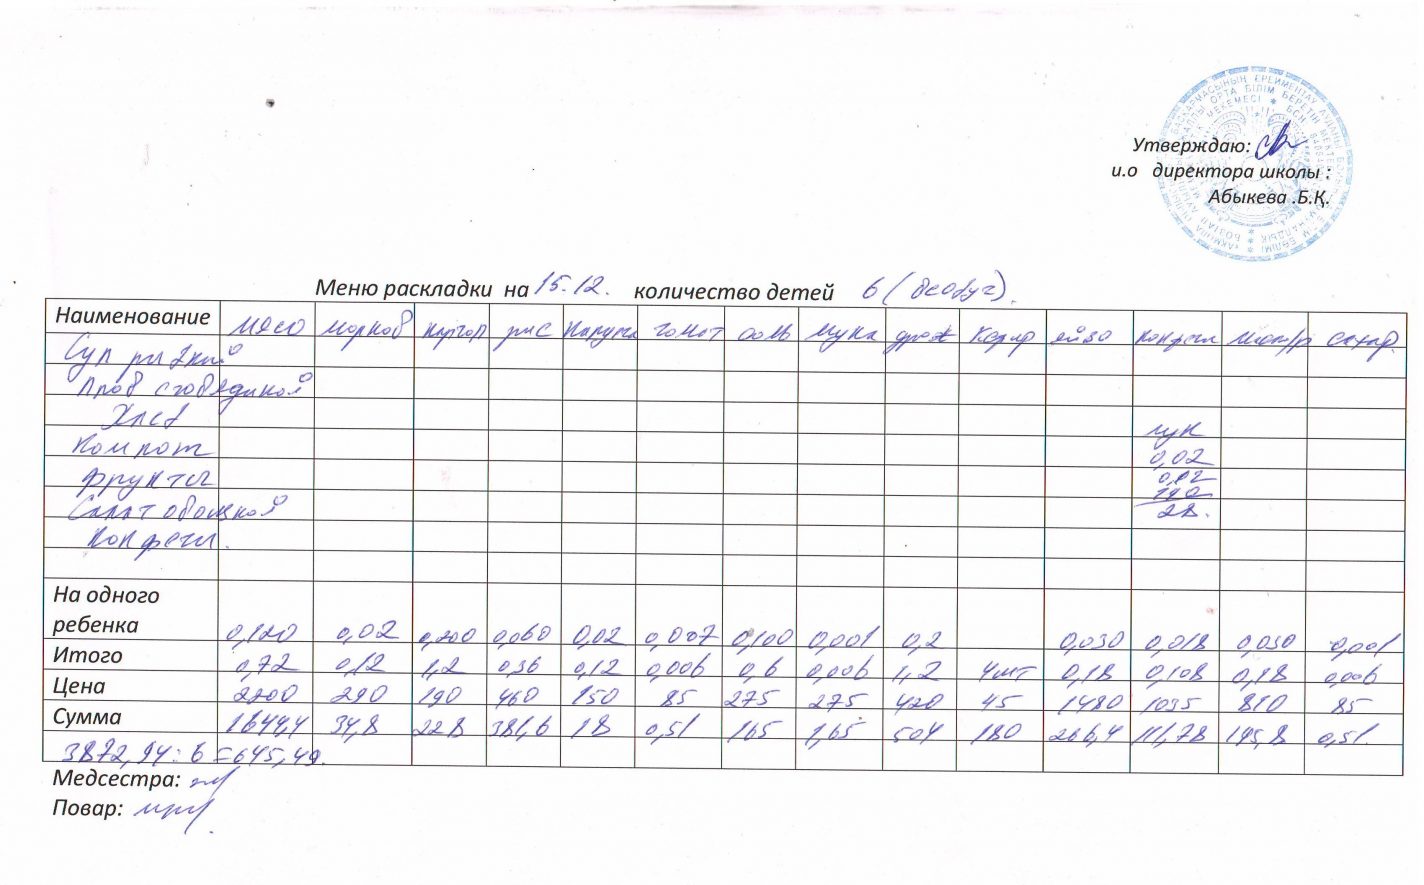 Утверждаю:
и.о директора школы :
Абыкева .Б.Қ.
Меню раскладки на 15.12. количество детей 6 (
Наименование мясо морков картоп рис капуста томат соль мука кефир яйзо конфеты сахар.
Суп
Плов с говядиной
Хлеб лук
Компот 0,02
Фрукты 0,12
Салат овощной 28.
Конфеты.
На одного
ребенка 0,120 0,02 0,200 0,060 0,02 0,007 0,100 0,001 0,2 0,030 0,018 0,030 0,001
Итого 0,72 0,12 1,2 0,36 0,12 0,006 0,6 0,006 1,2 4шт 0,18 0,108 0,18 0,006
Цена 290 190 460 150 85 275 275 420 45 1480 1035 810 85
Сумма 34,8 228 18 0,51 165 1,65 504 180 266,4 111,78 145,8 0,51.
3872,94 : 6 = 645,49.
Медсестра:
Повар: